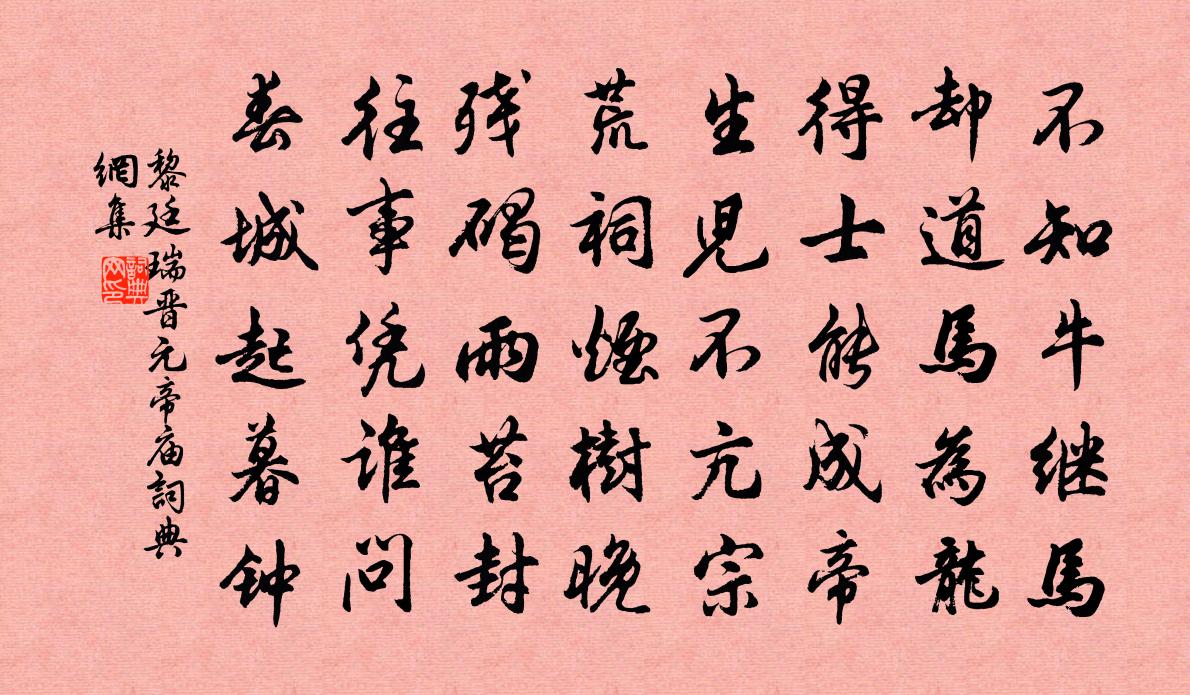 不知牛继馬
却道馬為龍
得士能成帝
生児不亢宗
荒祠煙樹晚
残碣雨苔封
往事凭谁问
春城起暮钟
黎廷瑞晋元帝庙詞典
網集
詞典网印